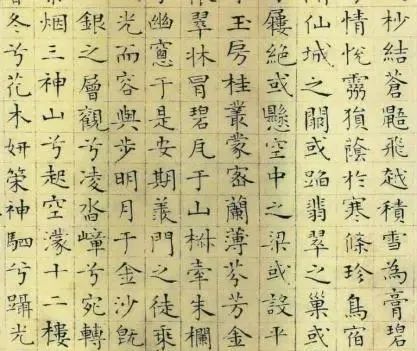 杪結蒼鼯飛越積雪為膏碧
情悅霧蔭於寒條珍鳥宿
仙城之闕或蹈翡翠之巢或
屨絕或懸空中之梁或設平
玉房桂叢蒙密蘭薄芬芳金
翠牀冒碧瓦于山牽朱欄
幽窻于是安期羨門之徒乘
光而容與步明月于金沙既
銀之層觀兮凌沓嶂兮宛轉
烟三神山兮起空濛十二樓
冬兮花木妍策神駟兮躡光